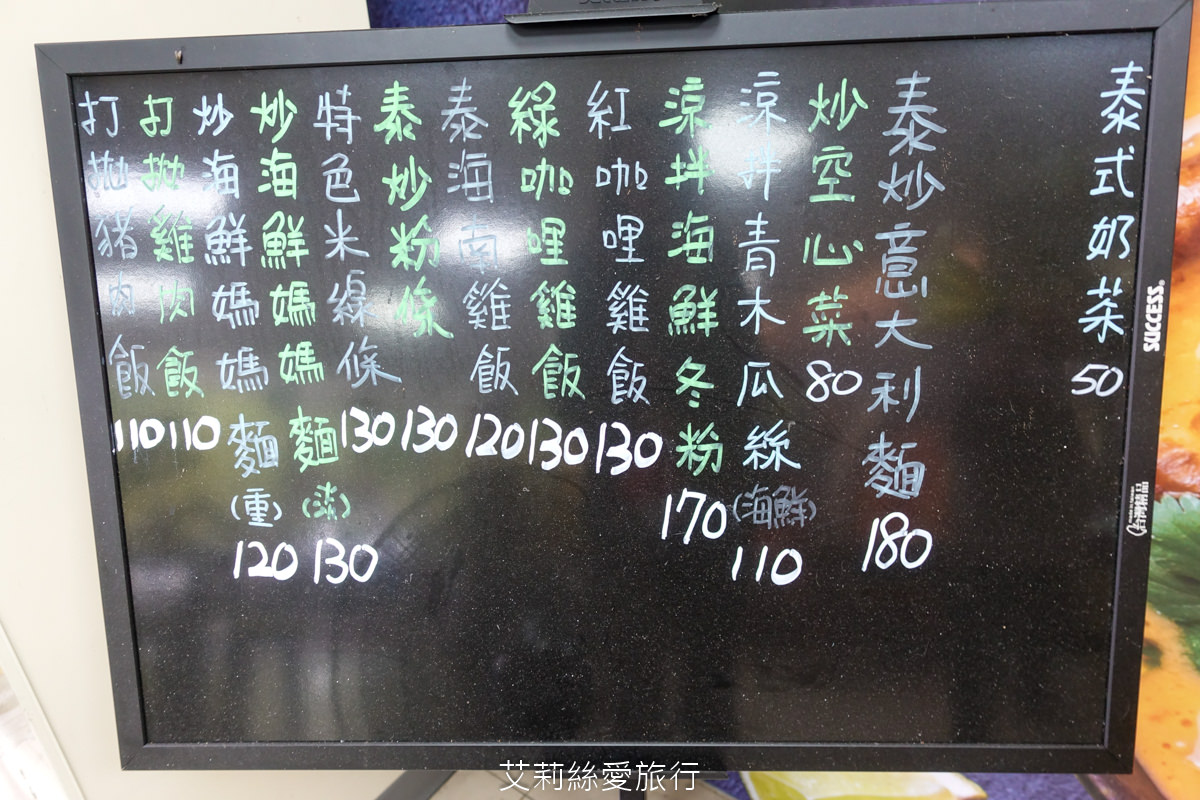 泰式奶茶50
泰炒意大利麵180
炒空心菜80
涼拌青木瓜絲(海鮮)110
涼拌海鮮冬粉170
紅咖哩雞飯130
綠咖哩雞飯130
泰海南雞飯120
泰炒粉條130
特色米線條130
炒海鮮媽媽麵130
炒海鮮媽媽麵(重)120
打拋雞肉飯110
打拋豬肉飯110
SUCCESS
台灣精品
艾莉絲愛旅行